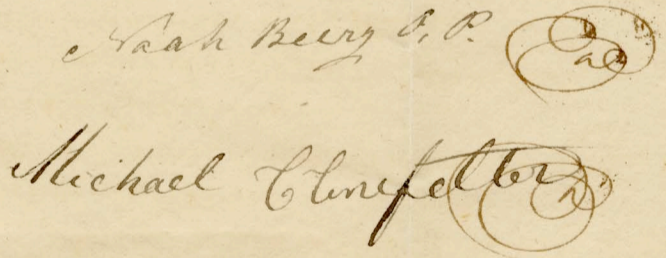 Noah Beery
Michael Clinefelter